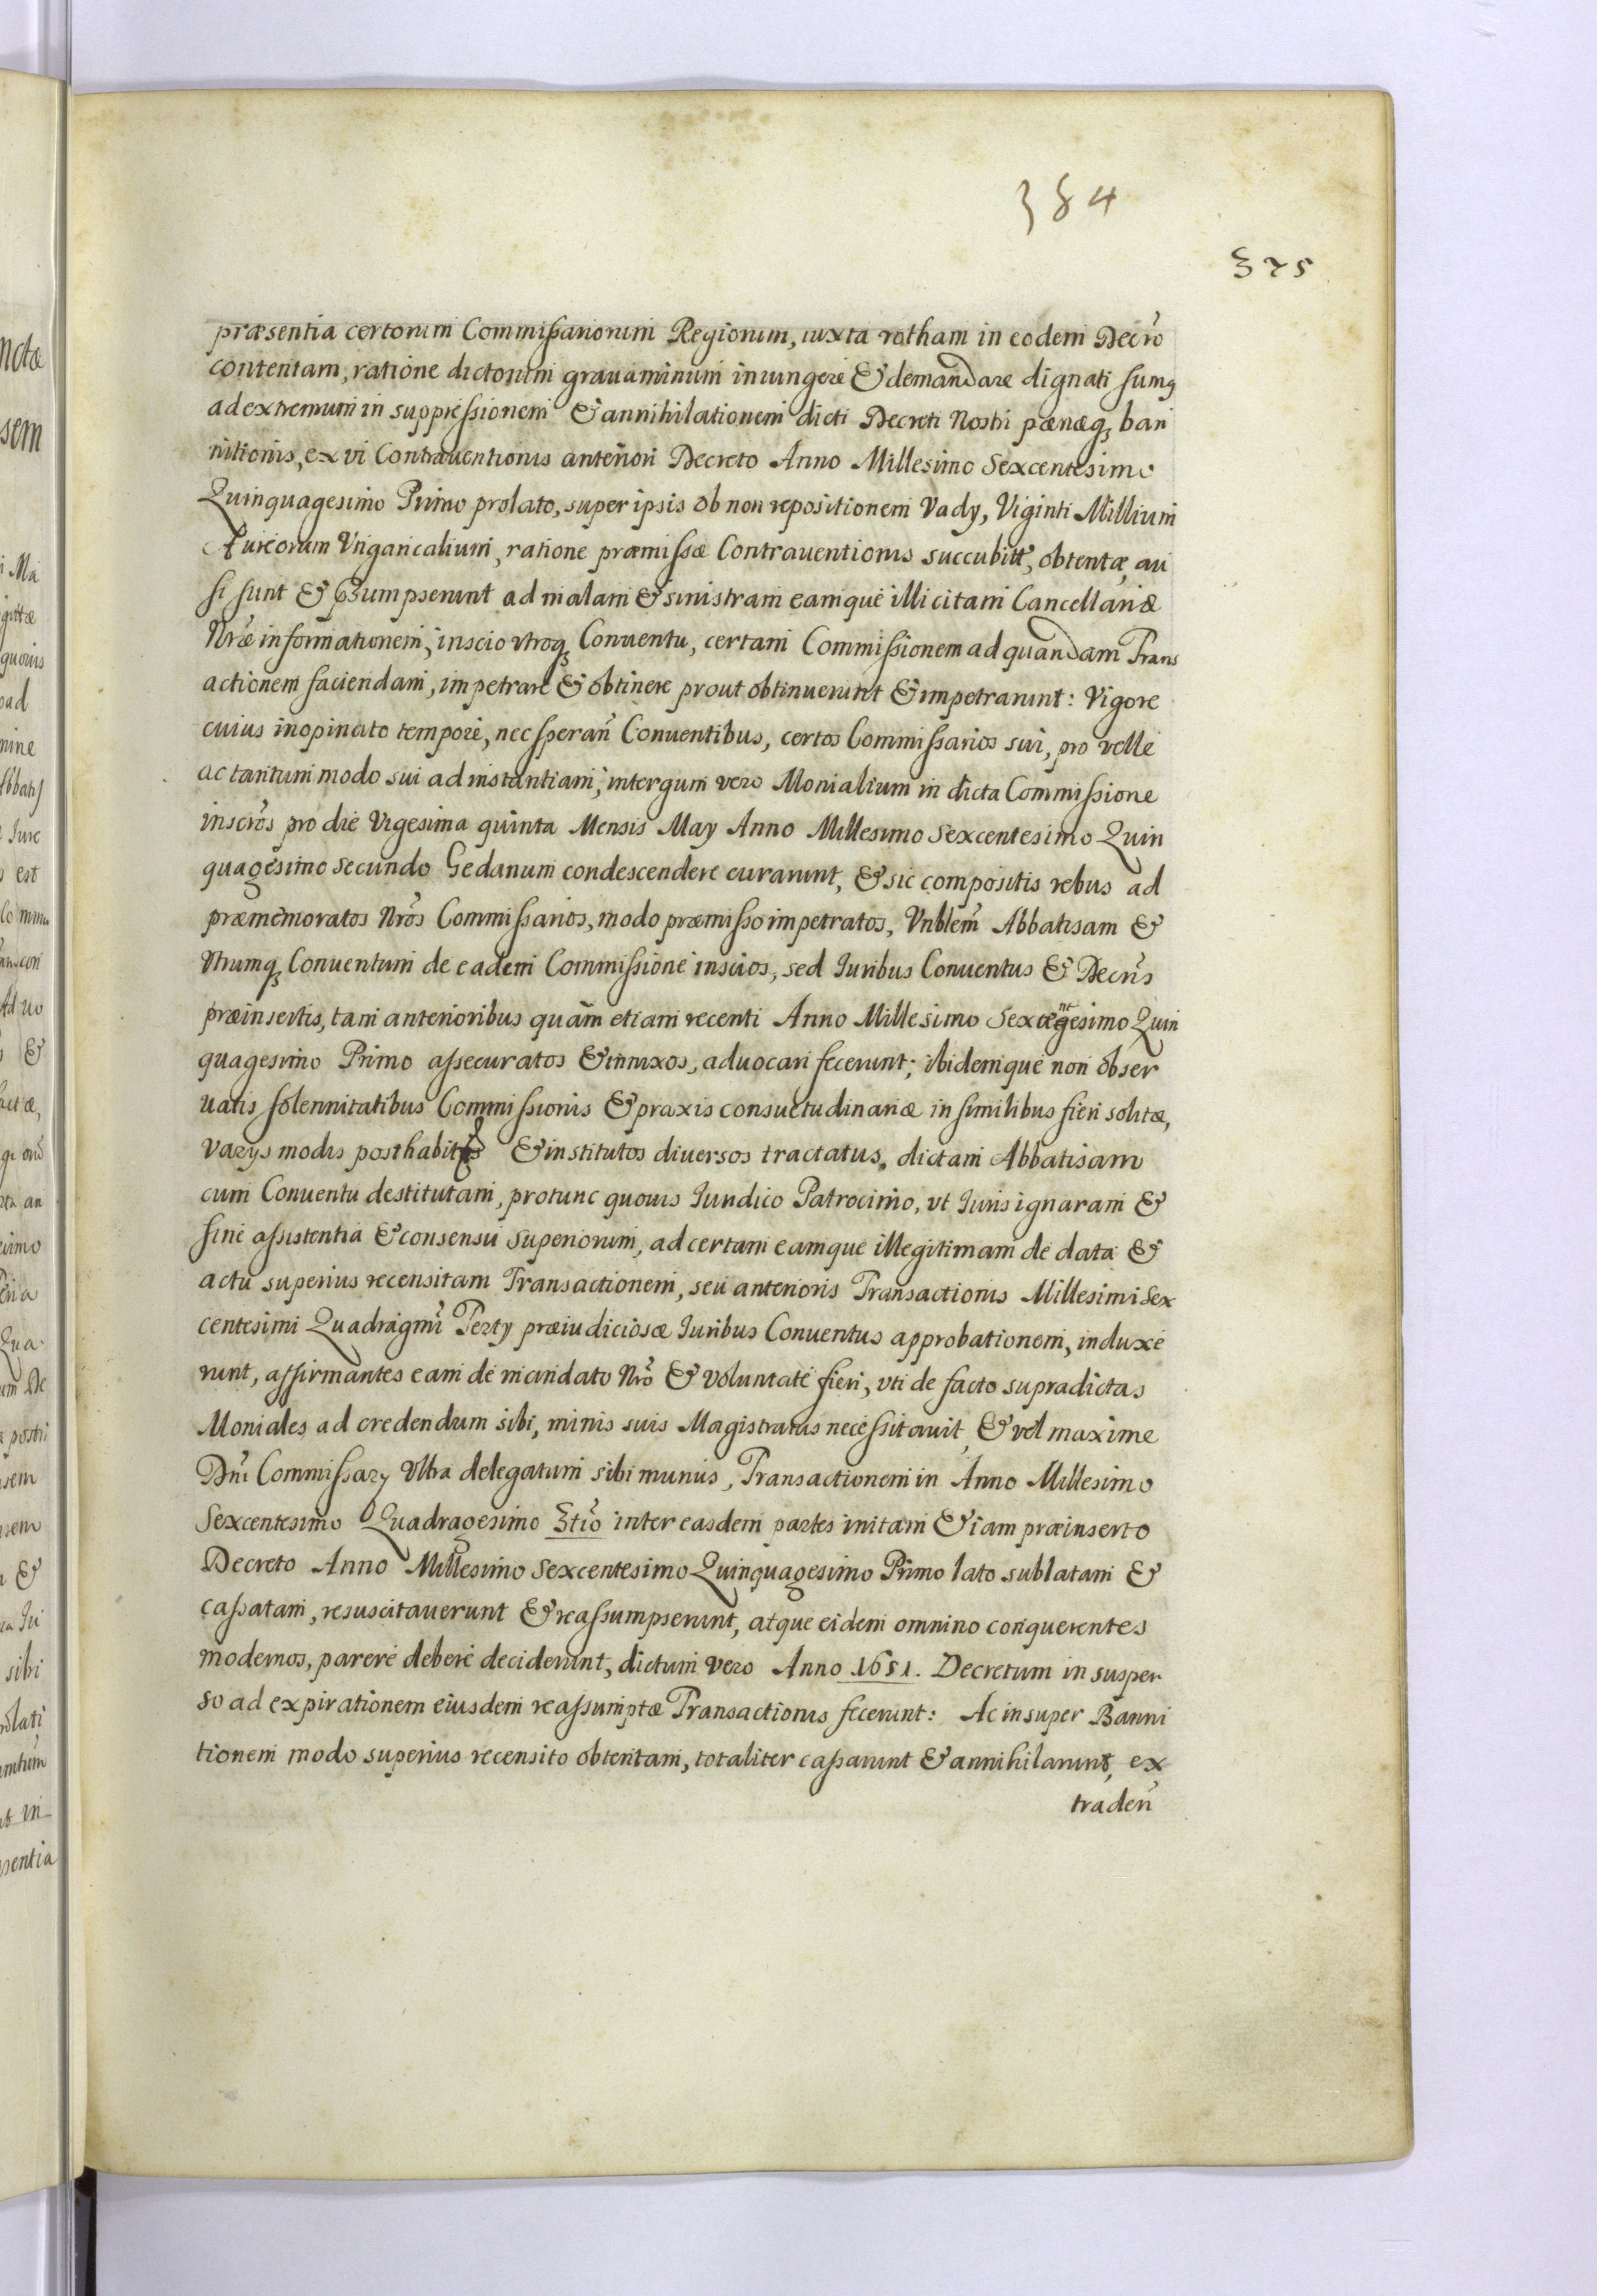 384
375
præsentia certorum Commissariorum Regiorum, iuxta rotham in eodem Decro͂
contentam, ratione dictorum grauaminum iniungere & demandare dignati sumꝯ
ad extremum in suppressionem & annihilationem dicti Decreti Nostri pænæq₃ ban
nitionis, ex vi Contrauentionis anteriori Decreto Anno Millesimo Sexcentesimo
Quinquagesimo Primo prolato, super ipsis ob non repositionem Vady, Viginti Millium
Aureorum Vngaricalium, ratione præmissæ Contrauentionis succubitæ, obtentæ, au
si sunt & præsumpserunt ad malam & sinistram eamque illicitam Cancellariæ
Nr̃æ informationem, inscio vtroq₃ Conuentu, certam Commissionem ad quandam Trans
actionem faciendam, impetrare & obtinere prout obtinuerunt & impetrarunt: Vigore
cuius inopinato tempore, nec speran͂ Conuentibus, certos Commissarios sui, pro velle
ac tantum modo sui ad instantiam, intergum vero Monialium in dicta Commissione
inscros͂ pro die Vigesima quinta Mensis May Anno Millesimo Sexcentesimo Quin
quagesimo secundo Gedanum condescendere curarunt, & sic compositis rebus ad
præmemoratos Nros͂ Commissarios, modo præmisso impetratos, Vnblem͂ Abbatisam &
Vtrumq₃ Conuentum de eadem Commissione inscios, sed Iuribus Conuentus & Decris͂
præinsertis, tam anterioribus quàm etiam recenti Anno Millesimo Sexcentgesimo Quin
quagesimo Primo assecuratos & innixos, aduocari fecerunt; ibidemque non obser
uatis solennitatibus Commissionis & praxis consuetudinariæ in similibus fieri solitæ,
Varys modis posthabitos & institutos diuersos tractatus, dictam Abbatisam
cum Conuentu destitutam, protunc quouis Iuridico Patrocinio, vt Iuris ignaram &
sine assistentia & consensu Superiorum, ad certam eamque illegitimam de data &
actu superius recensitam Transactionem, seu anterioris Transactionis Millesimi Sex
centesimi Quadragmi͂ Terty præiudiciosæ Iuribus Conuentus approbationem, induxe
runt, affirmantes eam de mandato Nro͂ & voluntate fieri, vti de facto supradictas
Moniales ad credendum sibi, minis suis Magistratus necessitauit, & vel maxime
Dni͂ Commissary Vltra delegatum sibi munus, Transactionem in Anno Millesimo
Sexcentesimo Quadragesimo 3tio͂ inter easdem partes initam & iam præinserto
Decreto Anno Millesimo Sexcentesimo Quinquagesimo Primo lato sublatam &
cassatam, resuscitauerunt & reassumpserunt, atque eidem omnino conquerentes
modernos, parere debere deciderunt, dictum vero Anno 1651. Decretum in susper
so ad expirationem eiusdem reassumptæ Transactionis fecerunt: Ac insuper Banni
tionem modo superius recensito obtentam, totaliter cassarunt & annihilarunt, ex
traden͂